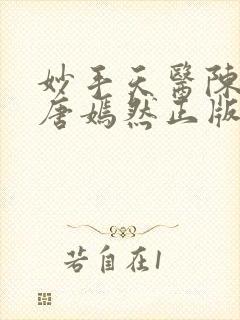 妙手天醫陳
唐嫣然正版
若自在1